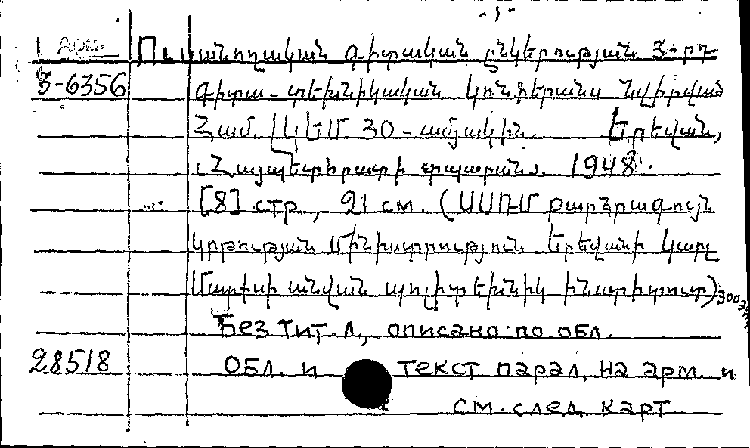 Ուսանողական գիտական ընկերության 3-րդ
3-6356 գիտա-տեխնիկական կոնֆերանս նվիրված
Համ. ԼԿԵՄ 30-ամյակին. Երեվան,
«Հայպետհրատի տպարան». 1948.
[8] стр, 21 см. (ՍՍՌՄ բարձրագույն
կրթության մինիստրություն. Երեվանի Կարլ
Մարքսի անվան պոլիտեխնիկ ինստիտուտ) 300 экз
Без тит. л., описано по обл.
28518 Обл. и текст парал. на арм. и
см. след. карт